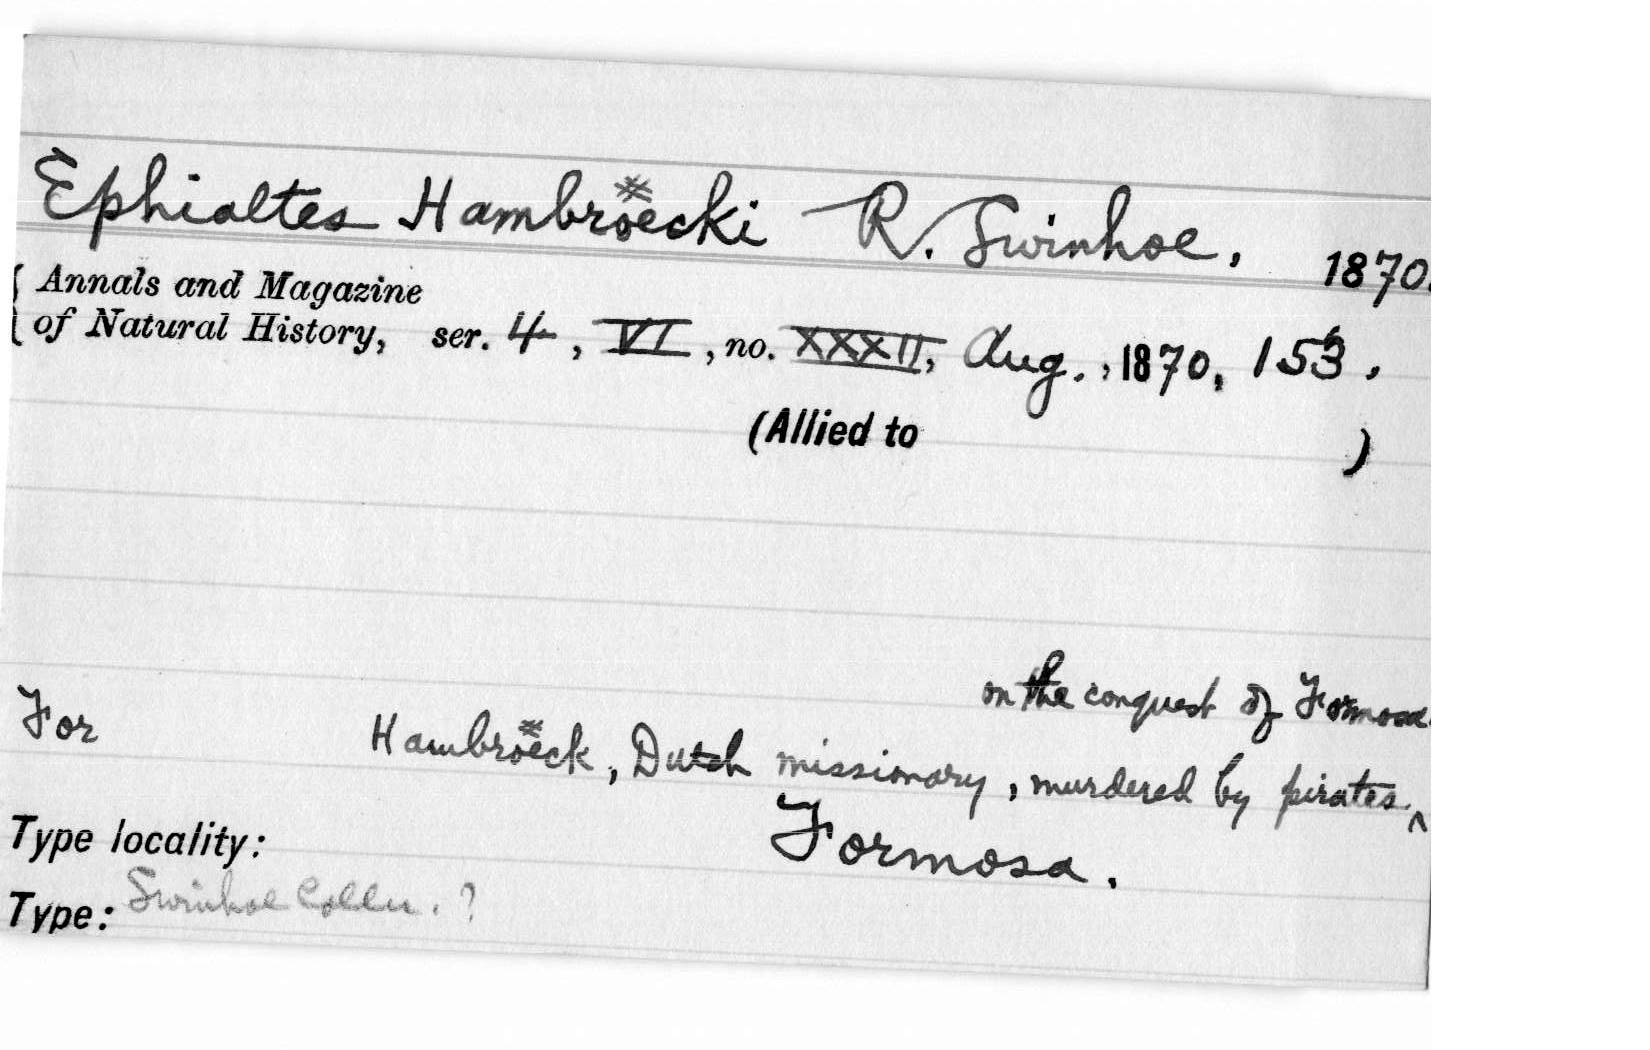 Ephialtes Hambroecki R. Swinhoe, 1870.
Annals and Magazine
of Natural History, ser. 4, VI, no. XXXII, Aug., 1870, 153.
(Allied to )
on the conquest of Formosa.
For Hambroeck, Dutch missionary, murdered by pirates ^
Type locality: Formosa.
Type: Swinhoe Colln. ?